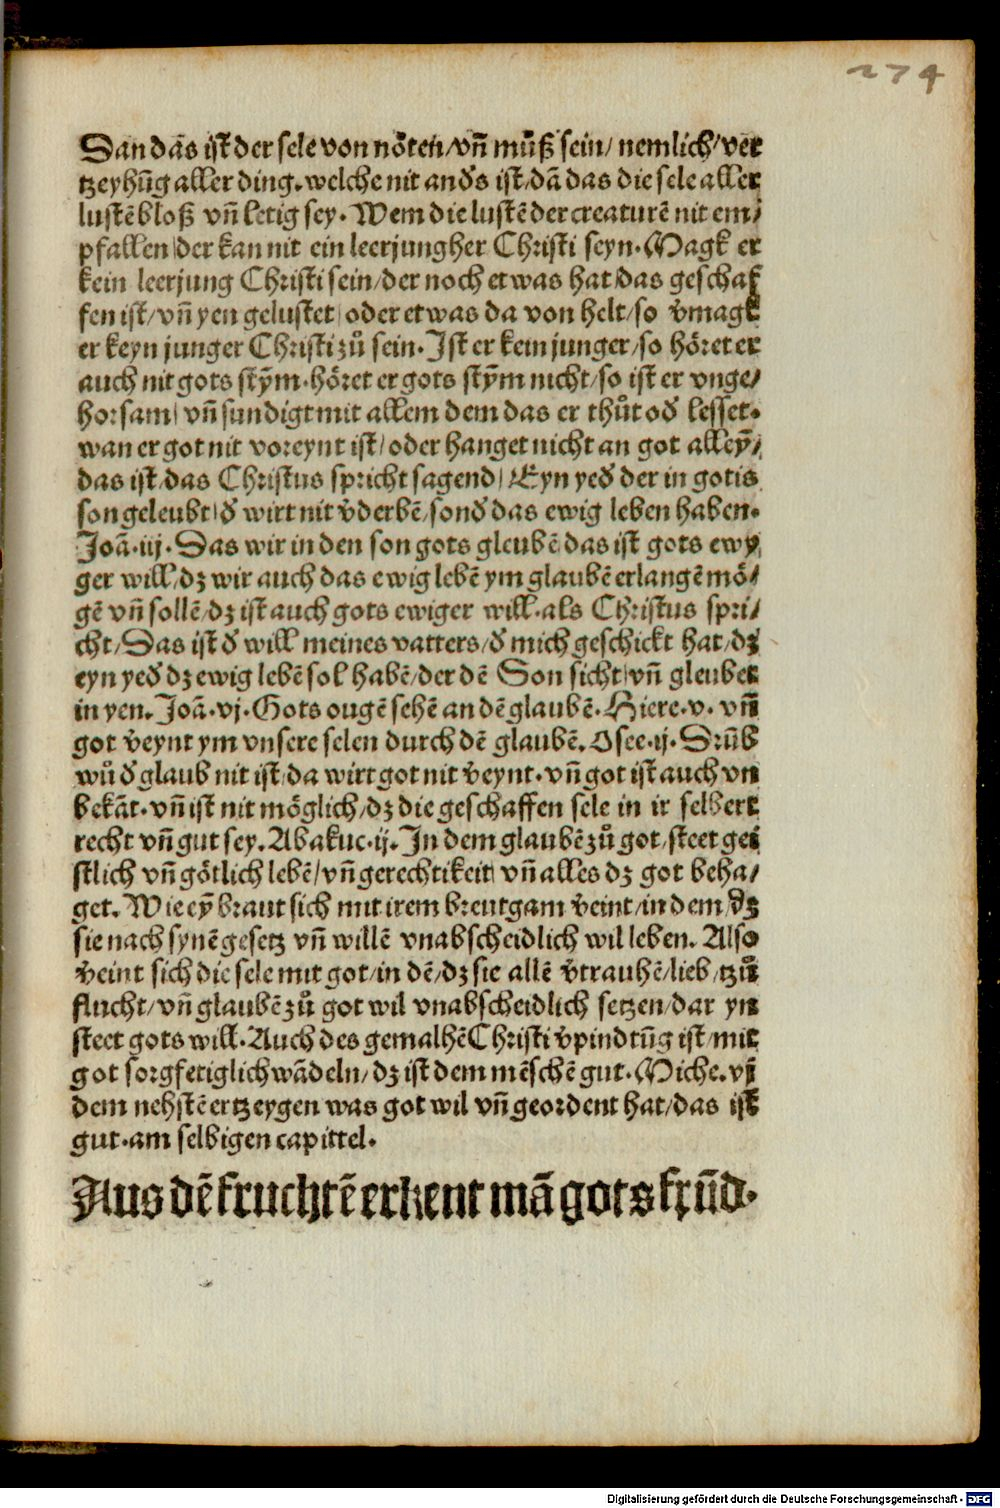 274
Dan das ist der sele von nöten/vñ müß sein/ nemlich/ ver
tzeyhũg aller ding. welche nit anđs ist/dã das die sele aller
lustẽ bloß vñ letig sey. Wem die lustẽ der creaturẽ nit em/
pfallen/der kan nit ein leerjungher Christi seyn. Magk er
kein leerjung Christi sein/der noch etwas hat/das geschaf
fen ist/vñ yen gelustet/oder etwas da von helt/so v̄magk
er keyn junger Christi zů sein. Ist er kein junger/so höret er
auch nit gots stȳm. höret er gots stȳm nicht/so ist er vnge/
horsam/ vñ sundigt mit allem dem das er thůt ođ lesset.
wan er got nit voreynt ist/oder hanget nicht an got alleȳ/
das ist/das Christus spricht sagend/ Eyn yeđ der in gotis
son geleubt/đ wirt nit v̄derbẽ/sonđ das ewig leben haben.
Joã. iij. Das wir in den son gots gleubẽ/das ist gots ewy
ger will/dz wir auch das ewig lebẽ ym glaubẽ erlangẽ mö/
gẽ vñ sollẽ/dz ist auch gots ewiger will. als Christus spri/
cht/Das ist đ will meines vatters/đ mich geschickt hat/dz
eyn yeđ dz ewig lebẽ sol habẽ/der dẽ Son sicht/vñ gleubet
in yen. Joã. vj. Gots ougẽ sehẽ an dẽ glaubẽ. Hiere. v. vñ
got v̄eynt ym vnsere selen durch dẽ glaubẽ. Osee. ij. Drũb
wů đ glaub nit ist/da wirt got nit v̄eynt. vñ got ist auch vn
bekãt. vñ ist nit möglich/dz die geschaffen sele in ir selbert
recht vñ gut sey. Abakuc. ij. In dem glaubẽ zů got/steet gei
stlich vñ götlich lebẽ/vñ gerechtikeit/ vñ alles dz got beha/
get. Wie eȳ braut sich mit irem breutgam v̄eint/in dem/dz
sie nach synẽ gesetz vñ willẽ vnabscheidlich wil leben. Also
v̄eint sich die sele mit got/in dẽ/dz sie allẽ v̄trauhẽ/lieb/tzů
flucht/vñ glaubẽ zů got wil vnabscheidlich setzen/dar yn
steet gots will. Auch des gemalhẽ Christi v̄pindtũg ist/mit
got sorgfetiglich wãdeln/dz ist dem mẽschẽ gut. Miche. vj
dem nehstẽ ertzeygen was got wil vñ geordent hat/das ist
gut. am selbigen capittel.
Aus dẽ fruchtẽ erkent mã gots frũd.
Digitalisierung gefördert durch die Deutsche Forschungsgemeinschaft - DFG